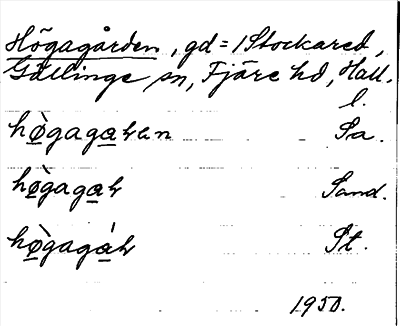 Högagården, gd = 1 Stockared,
Gällinge sn, Fjäre hd, Hall.
l.
hø̀gagaʀan Sa.
hø̀gagaʀ Sand.
hø̀gagáʀ St.
1950.